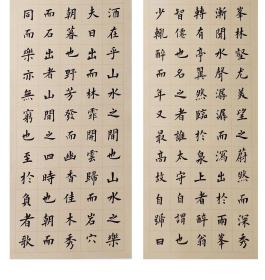 峯林壑尤美望之蔚然而深秀
漸聞水聲潺潺而瀉出於兩峯
轉有亭翼然臨於泉上者醉翁
智僊也名之者誰太守自謂也
少輒醉而年又最高故自號曰
酒在乎山水之間也山水之樂
夫日出而林霏開雲歸而岩穴
朝暮也野芳發而幽香佳木秀
石出 間之四時也朝
同而樂亦無窮也至於負者歌